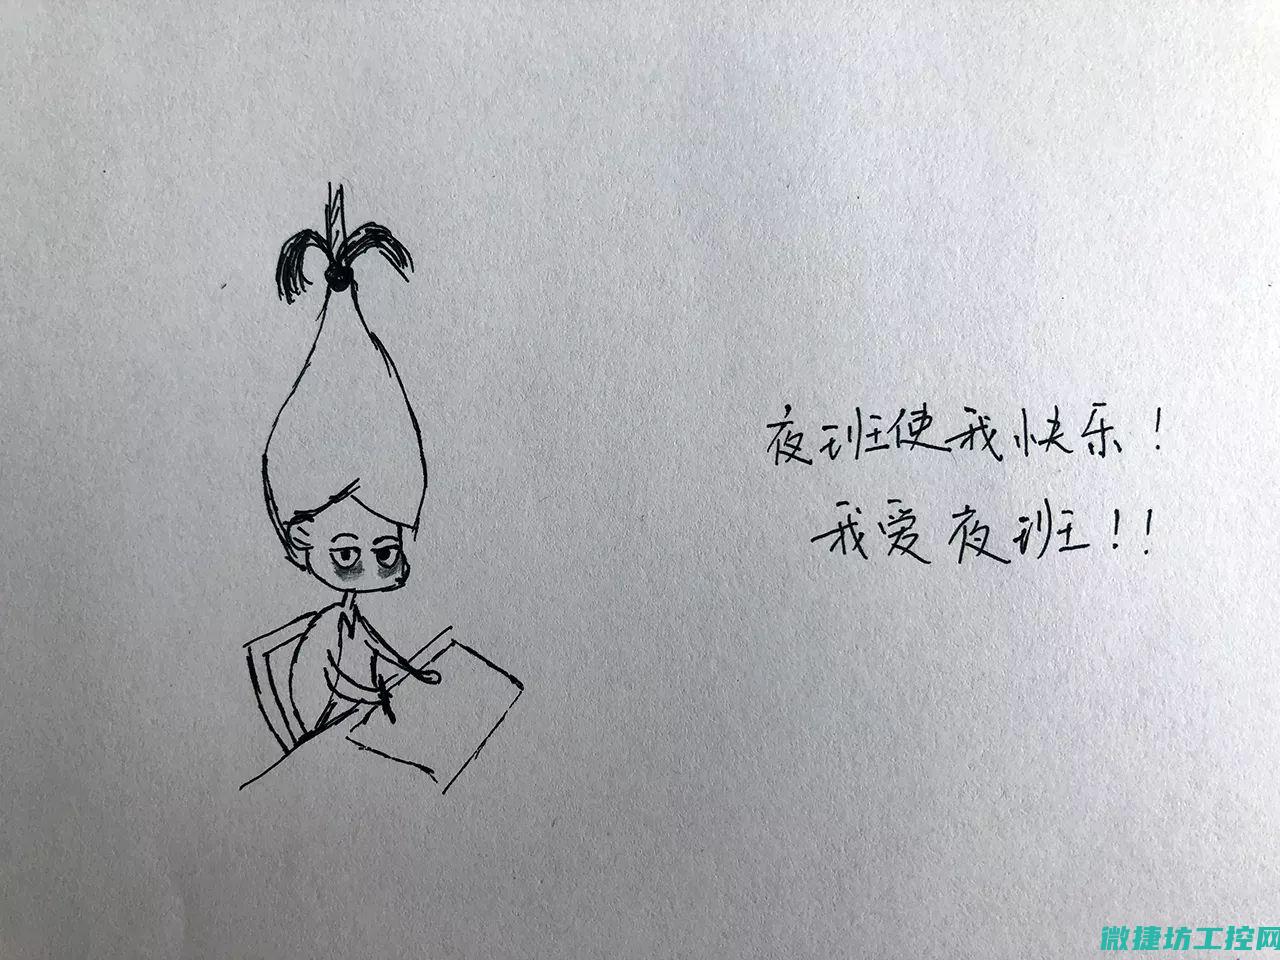 夜班使我快乐！
我爱夜班！！
微捷坊工控网